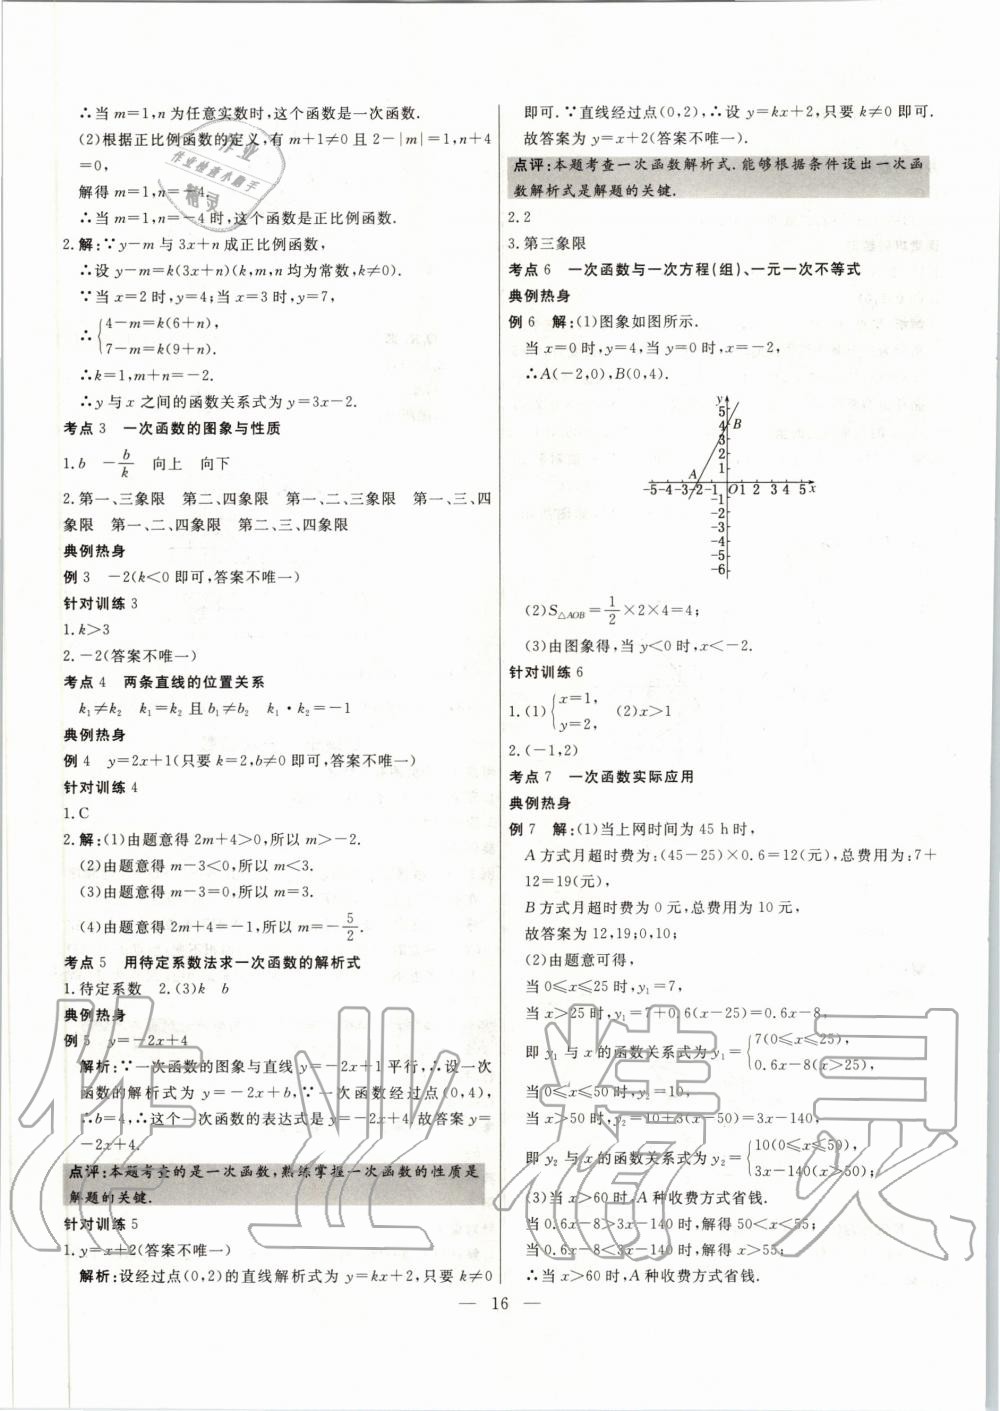 ∴当 m=1,n 为任意实数时,这个函数是一次函数.
(2)根据正比例函数的定义,有 m+1≠0 且 2-|m|=1,n+4
=0,
解得 m=1,n=-4.
∴当 m=1,n=-4 时,这个函数是正比例函数.
2.解:∵y-m 与 3x+n 成正比例函数,
∴设 y-m=k(3x+n)(k,m,n 均为常数,k≠0).
∵当 x=2 时,y=4;当 x=3 时,y=7,
∴{4-m=k(6+n),
7-m=k(9+n).
∴k=1,m+n=-2.
∴y 与 x 之间的函数关系式为 y=3x-2.
考点 3 一次函数的图象与性质
1.b -b/k 向上 向下
2.第一、三象限 第二、四象限 第一、二、三象限 第一、三、四
象限 第一、二、四象限 第二、三、四象限
典例热身
例 3 -2(k<0 即可,答案不唯一)
针对训练 3
1.k>3
2.-2(答案不唯一)
考点 4 两条直线的位置关系
k₁≠k₂ k₁=k₂ 且 b₁≠b₂ k₁·k₂=-1
典例热身
例 4 y=2x+1(只要 k=2,b≠0 即可,答案不唯一)
针对训练 4
1.C
2.解:(1)由题意得 2m+4>0,所以 m>-2.
(2)由题意得 m-3<0,所以 m<3.
(3)由题意得 m-3=0,所以 m=3.
(4)由题意得 2m+4=-1,所以 m=-5/2.
考点 5 用待定系数法求一次函数的解析式
1.待定系数 2.(3)k b
典例热身
例 5 y=-2x+4
解析:∵一次函数的图象与直线 y=-2x+1 平行,∴设一次
函数的解析式为 y=-2x+b,∵一次函数经过点(0,4),
∴b=4,∴这个一次函数的表达式是 y=-2x+4.故答案为 y=
-2x+4.
点评:本题考查的是一次函数,熟练掌握一次函数的性质是
解题的关键.
针对训练 5
1.y=x+2(答案不唯一)
解析:设经过点(0,2)的直线解析式为 y=kx+2,只要 k≠0
即可.∵直线经过点(0,2),∴设 y=kx+2,只要 k≠0 即可.
故答案为 y=x+2(答案不唯一).
点评:本题考查一次函数解析式.能够根据条件设出一次函
数解析式是解题的关键.
2.2
3.第三象限
考点 6 一次函数与一次方程(组)、一元一次不等式
典例热身
例 6 解:(1)图象如图所示.
当 x=0 时,y=4,当 y=0 时,x=-2,
∴A(-2,0),B(0,4).
y
5
4 B
3
2
1
A
-5-4-3-2-1 O 1 2 3 4 5 x
-1
-2
-3
-4
-5
-6
(2)S△AOB=1/2×2×4=4;
(3)由图象得,当 y<0 时,x<-2.
针对训练 6
1.(1){x=1,
y=2, (2)x>1
2.(-1,2)
考点 7 一次函数实际应用
典例热身
例 7 解:(1)当上网时间为 45 h 时,
A 方式月超时费为:(45-25)×0.6=12(元),总费用为:7+
12=19(元),
B 方式月超时费为 0 元,总费用为 10 元,
故答案为 12,19;0,10;
(2)由题意可得,
当 0≤x≤25 时,y₁=7,
当 x>25 时,y₁=7+0.6(x-25)=0.6x-8,
即 y₁ 与 x 的函数关系式为 y₁={7(0≤x≤25),
0.6x-8(x>25),
当 0≤x≤50 时,y₂=10,
当 x>50 时,y₂=10+3(x-50)=3x-140,
即 y₂ 与 x 的函数关系式为 y₂={10(0≤x≤50),
3x-140(x>50);
(3)当 x>60 时,A 种收费方式省钱.
当 0.6x-8>3x-140 时,解得 50<x<55;
当 0.6x-8<3x-140 时,解得 x>55;
∴当 x>60 时,A 种收费方式省钱.
— 16 —
作业精灵
作业
作业检查小助手
精灵